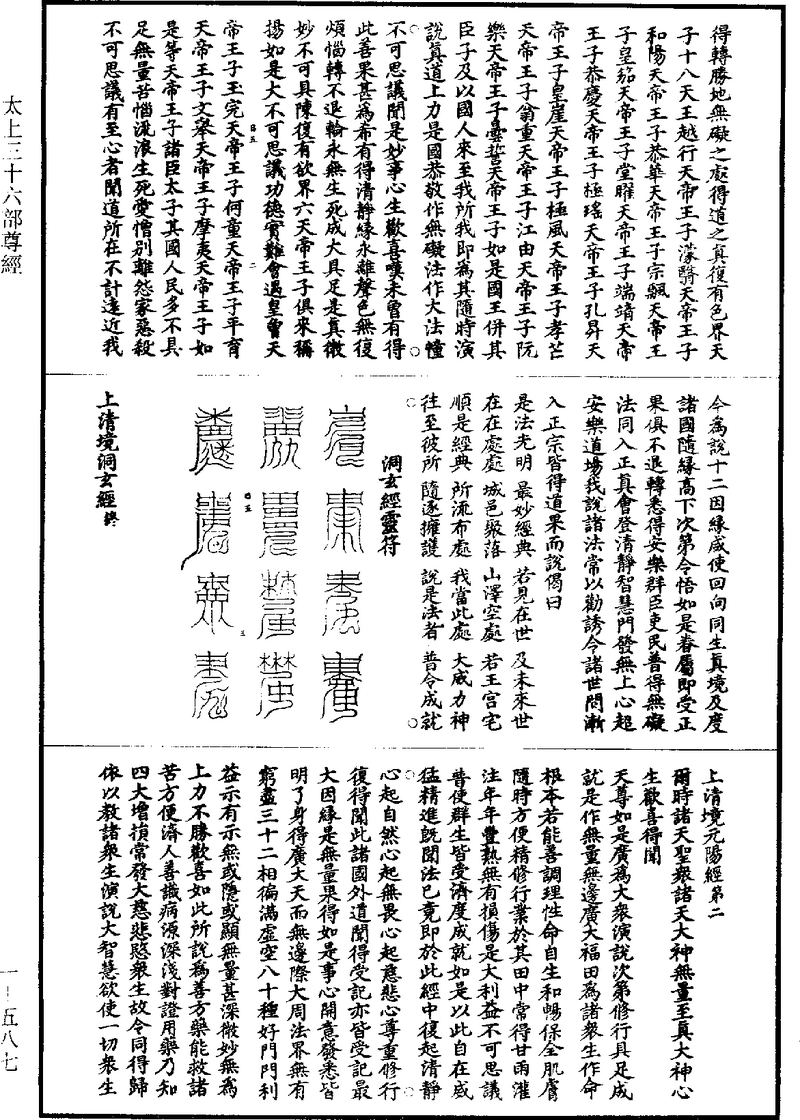 太上三十六部尊經
得轉勝地無礙之處得道之真復有色界天
子十八天王越行天帝王子濛翳天帝王子
和陽天帝王子恭華天帝王子宗飄天帝王
子皇笳天帝王子堂曜天帝王子端靖天帝
王子恭慶天帝王子極瑤天帝王子孔昇天
帝王子皇崖天帝王子極風天帝王子孝芒
天帝王子翁重天帝王子江由天帝王子阮
樂天帝王子曇誓天帝王子如是國王併其
臣子及以國人來至我所我即為其隨時演
說真道上力是國恭敬作無礙法作大法幢
不可思議聞是妙事心生歡喜嘆未曾有得
此善果甚為希有得清靜緣永離聲色無復
煩惱轉不退輪永無生死成大具足是真微
妙不可具陳復有欲界六天帝王子俱來稱
揚如是大不可思議功德實難會遇皇曾天
帝王子玉完天帝王子何童天帝王子平育
天帝王子文舉天帝王子摩夷天帝王子如
是等天帝王子諸臣太子其國人民多不具
足無量苦惱流浪生死愛憎別離怨家惡殺
不可思議有至心者聞道所在不計遠近我
今為說十二因緣咸使回向同生真境及度
諸國隨緣高下次第令悟如是眷屬即受正
果俱不退轉悉得安樂群臣吏民普得無礙
法同入正真會登清靜智慧門發無上心超
安樂道場我說諸法常以勸誘令諸世間漸
入正宗皆得道果而說偈曰
是法光明 最妙經典 若見在世 及未來世
在在處處 城邑聚落 山澤空處 若王宮宅
順是經典 所流布處 我當此處 大威力神
往至彼所 隨逐擁護 說是法者 普令成就
洞玄經靈符
上清境洞玄經終
上清境元陽經第二
爾時諸天聖眾諸天大神無量至真大神心
生歡喜得聞
天尊如是廣為大眾演說次第修行具足成
就是作無量無邊廣大福田為諸眾生作命
根本若能善調理性命自生和暢保全肌膚
隨時方便精修行業於其田中常得甘雨灌
注年年豐熟無有損傷是大利益不可思議
普使群生皆受濟度成就如是以此自在威
猛精進既聞法已竟即於此經中復起清靜
心起自然心起無畏心起慈悲心尊重修行
復得聞此諸國外道聞得受記亦皆受記最
大因緣是無量果得如是事心開意發悉皆
明了身得廣大天而無邊際大周法界無有
窮盡三十二相徧滿虛空八十種好門門利
益示有示無或隱或顯無量甚深微妙無為
上力不勝歡喜如此所說為善方藥能救諸
苦方便濟人善識病源深淺對證用藥乃知
四大增損常發大慈悲愍眾生故令同得歸
依以教諸眾生演說大智慧欲使一切眾生
一－五八七